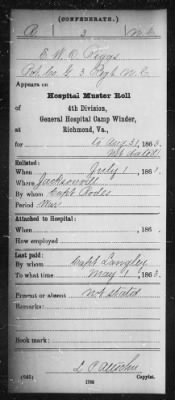 (CONFEDERATE.)
3 N.C.
E. W. D.
Pvt. Co. G. 3 Regt N. C.
Appears on
Hospital Muster Roll
of
4th Division,
General Hospital Camp Winder,
at
Richmond, Va.,
for to Aug 31, 1863.
not dated
Enlisted:
When July 1, 186
Where Jacksonvill
By whom Capt Rodes
Period War
Attached to Hospital:
When , 186 .
How employed
Last paid:
By whom Capt Langley
To what time May 1, 1863.
Present or absent not stated
Remarks:
Book mark:
(645) Copyist.